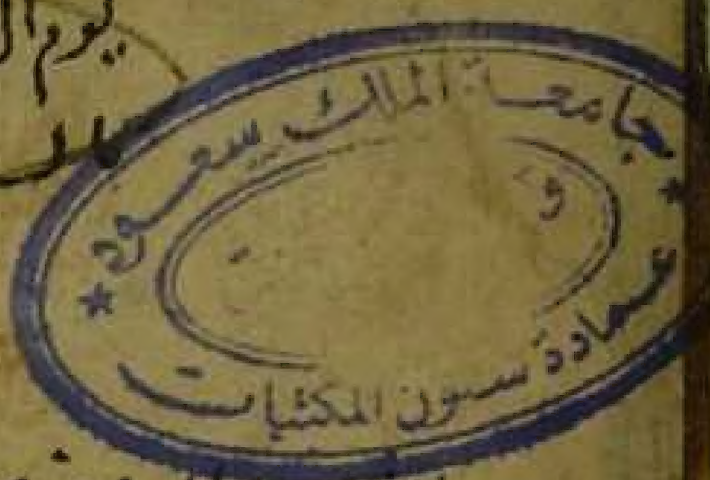 يوم ال
جامعة الملك سعود
عمادة سئون المكتبات